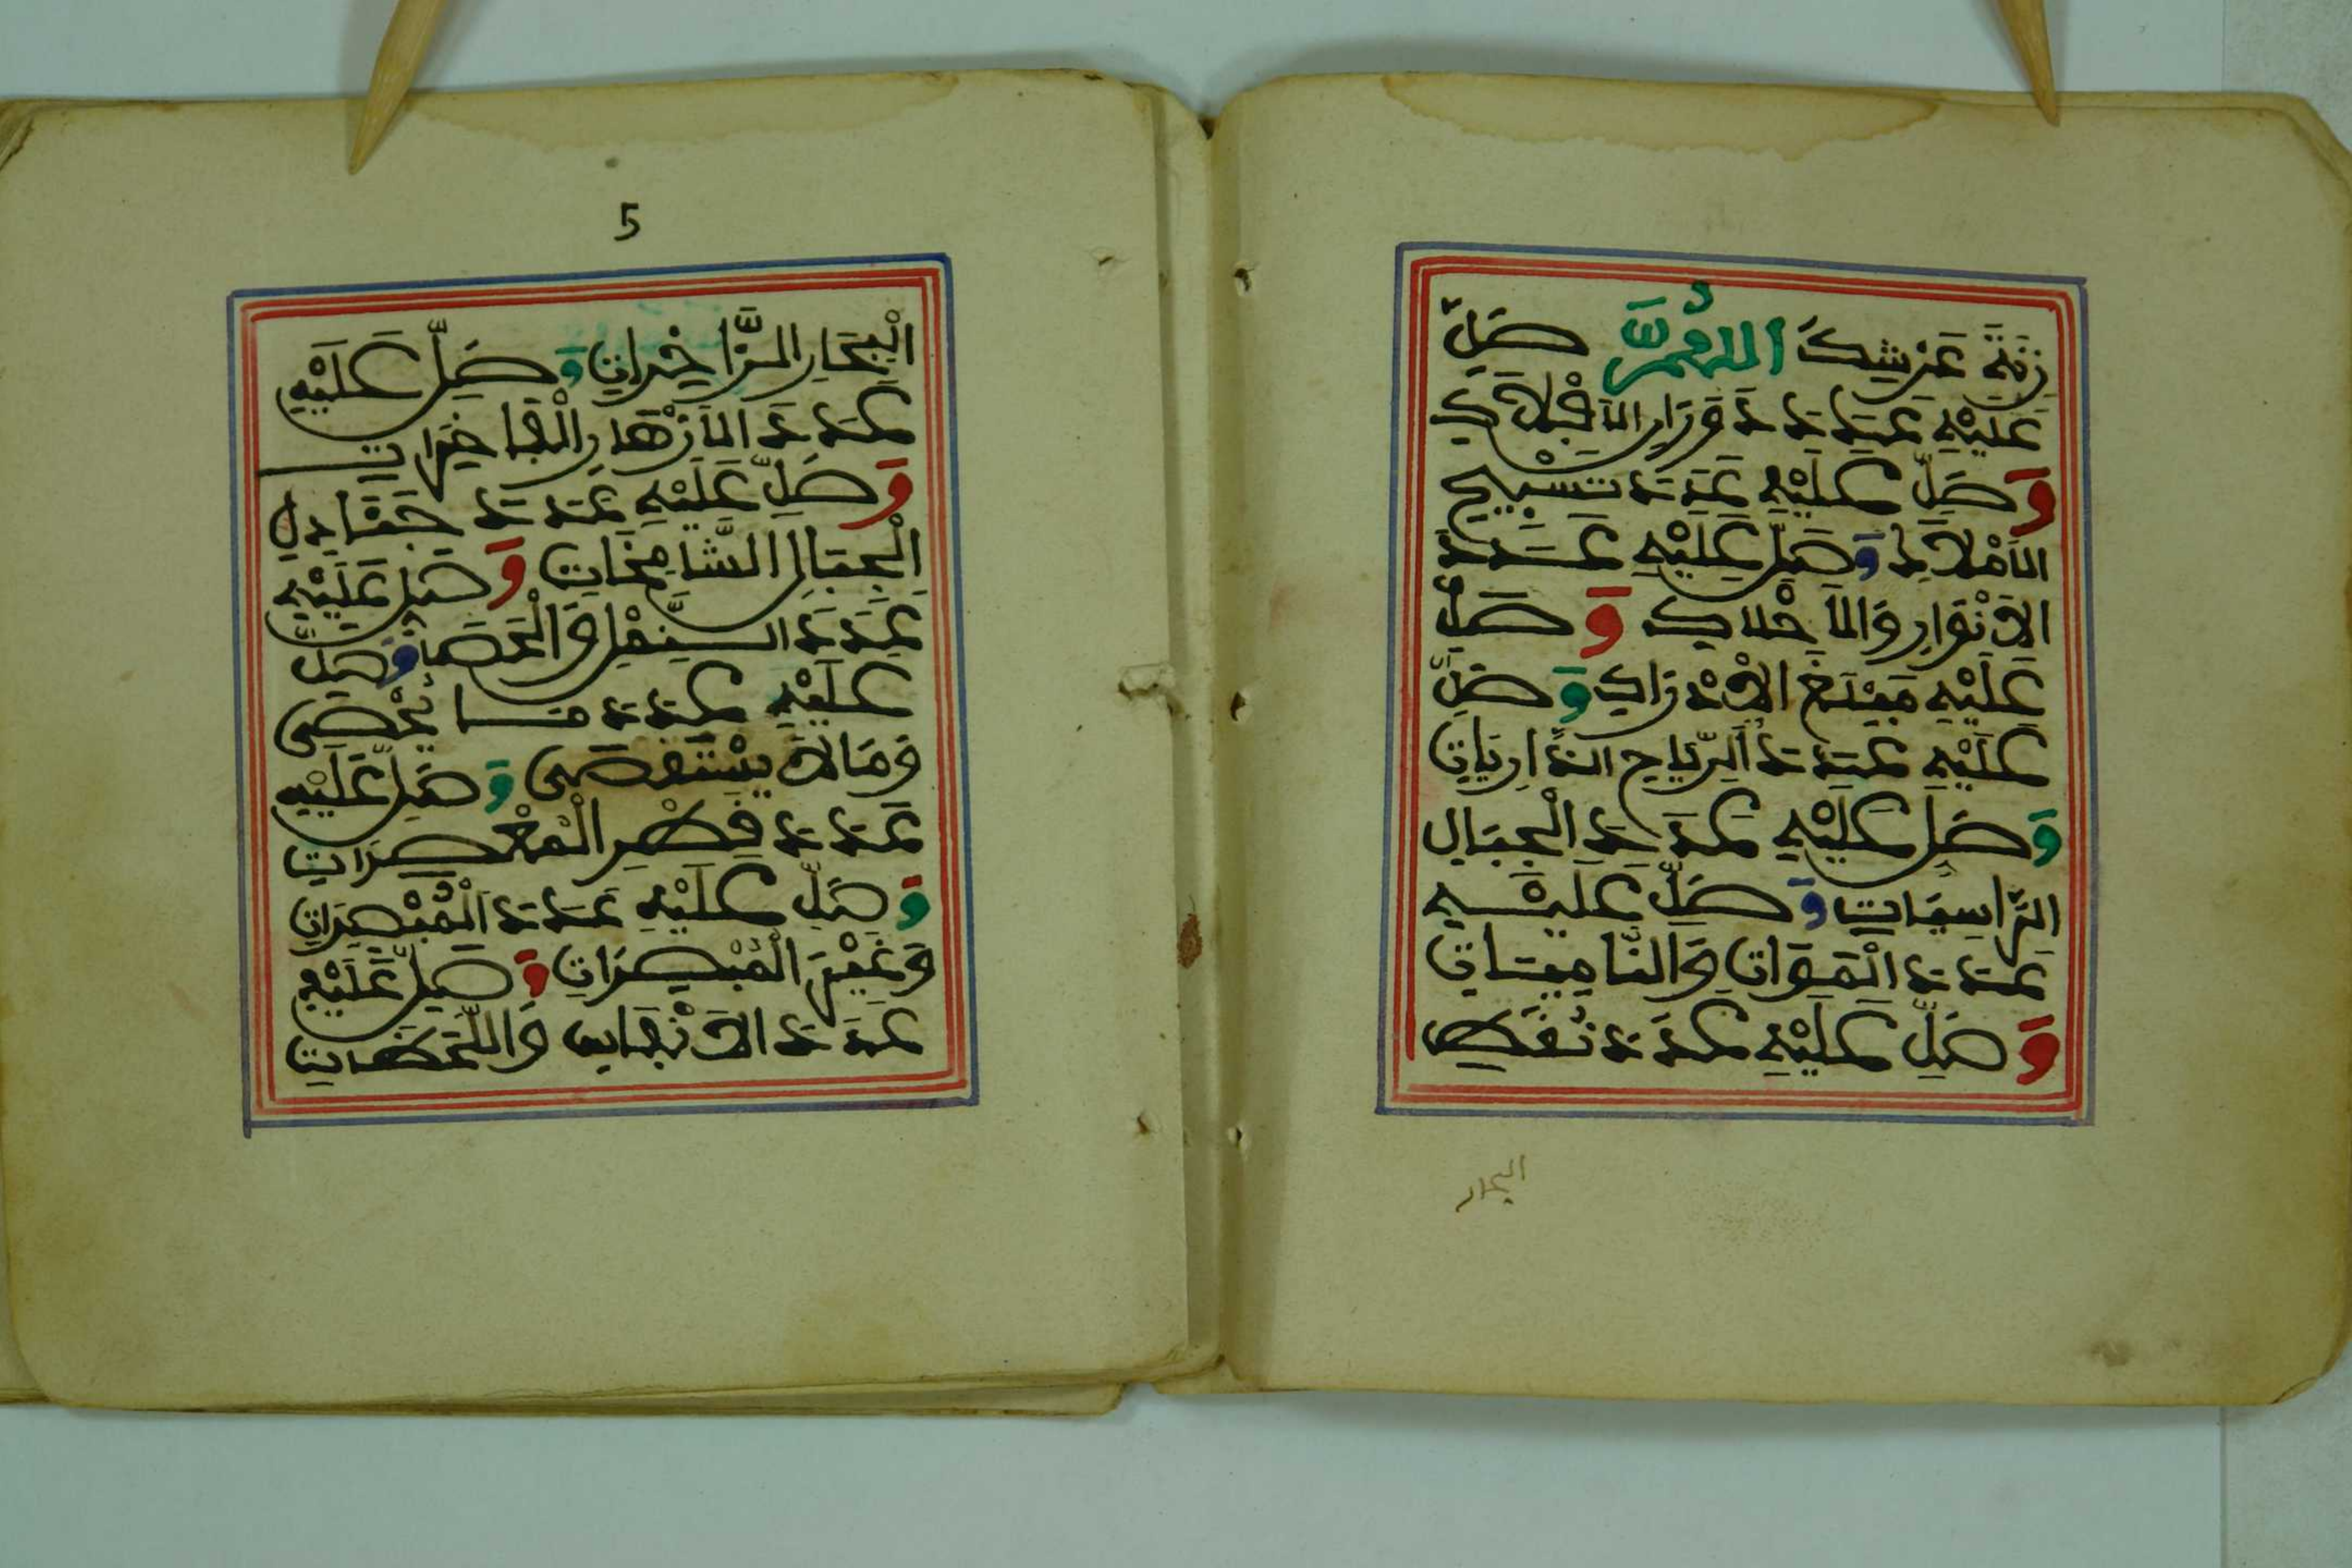 زِنَةَ عَرْشِكَ اللهُمَّ صَلِّ
عَلَيْهِ عَدَدَ دَوَرَانِ الأَفْلاَكِ
وَصَلِّ عَلَيْهِ عَدَدَ تَسْبِيحِ
الأَمْلاَكِ وَصَلِّ عَلَيْهِ عَدَدَ
الأَنْوَارِ وَالأَحْلاَكِ وَصَلِّ
عَلَيْهِ مَبْلَغَ الأِدْرَاكِ وَصَلِّ
عَلَيْهِ عَدَدَ الرِّيَاحِ الذَّارِيَاتِ
وَصَلِّ عَلَيْهِ عَدَدَ الْجِبَالِ
الرَّاسِيَاتِ وَصَلِّ عَلَيْهِ
عَدَدَ الْمَوَاتِ وَالنَّامِيَاتِ
وَصَلِّ عَلَيْهِ عَدَدَ نُقَطِ
البحار
5
الْبِحَارِ الزَّاخِرَاتِ وَصَلِّ عَلَيْهِ
عَدَدَ الأَزْهَارِ الْفَاخِرَاتِ
وَصَلِّ عَلَيْهِ عَدَدَ جَنَادِلِ
الْجِبَالِ الشَّامِخَاتِ وَصَلِّ عَلَيْهِ
عَدَدَ الرَّمْلِ وَالْحَصَا وَصَلِّ
عَلَيْهِ عَدَدَ مَا يُحْصَى
وَمَالاَ يُسْتَقْصَى وَصَلِّ عَلَيْهِ
عَدَدَ قَطْرِ الْمُعْصِرَاتِ
وَصَلِّ عَلَيْهِ عَدَدَ الْمُبْصَرَاتِ
وَغَيْرِ الْمُبْصِرَاتِ وَصَلِّ عَلَيْهِ
عَدَدَ الأَنْفَاسِ وَاللَّحَظَاتِ